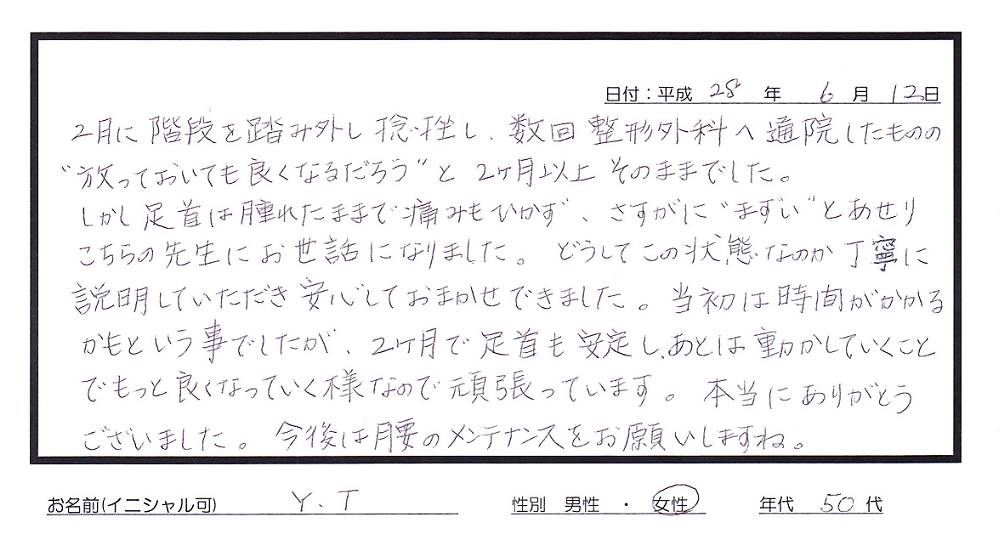 日付：平成 28 年 6 月 12日
2月に階段を踏み外し捻挫し、数回整形外科へ通院したものの
"放っておいても良くなるだろう"と 2ヶ月以上そのままでした。
しかし足首は腫れたままで痛みもひかず、さすがに"まずい"とあせり
こちらの先生にお世話になりました。どうしてこの状態なのか丁寧に
説明していただき安心しておまかせできました。当初は時間がかかる
かもという事でしたが、2ヶ月で足首も安定し、あとは動かしていくこと
でもっと良くなっていく様なので頑張っています。本当にありがとう
ございました。今後は腰のメンテナンスをお願いしますね。
お名前(イニシャル可) Y.T 性別 男性 ・ 女性 年代 50 代